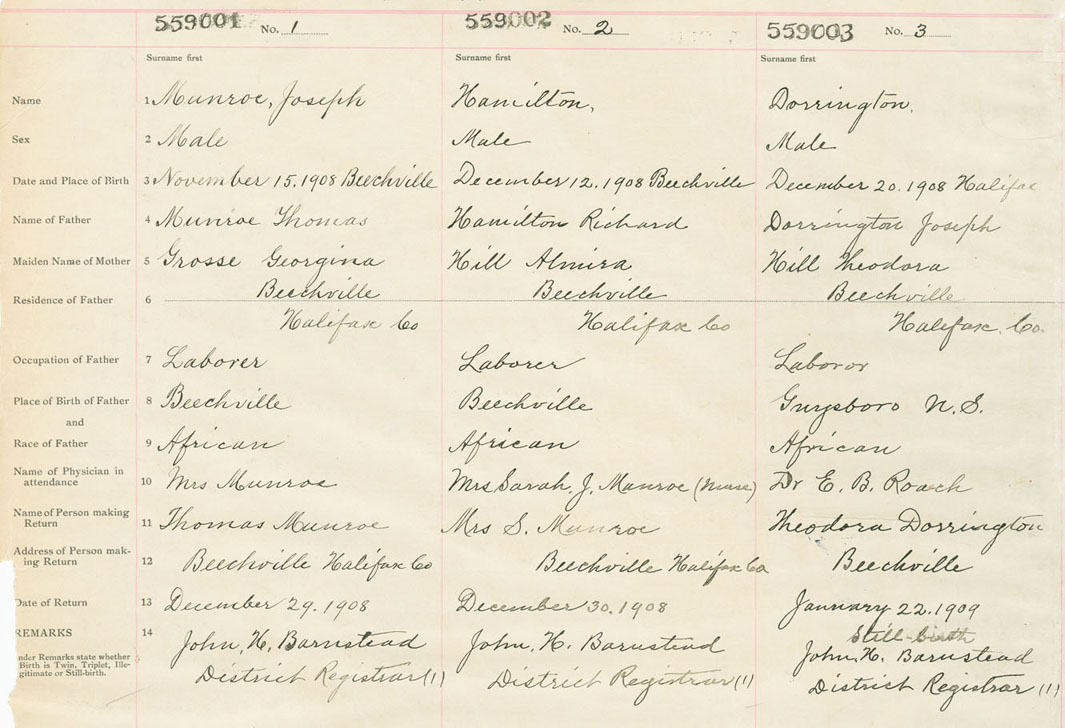 559001 No. 1 559002 No. 2 559003 No. 3
Surname first Surname first Surname first
Name 1 Munroe, Joseph Hamilton, Dorrington,
Sex 2 Male Male Male
Date and Place of Birth 3 November 15. 1908 Beechville December 12. 1908 Beechville December 20. 1908 Halifax
Name of Father 4 Munroe Thomas Hamilton Richard Dorrington Joseph
Maiden Name of Mother 5 Grosse Georgina Hill Almira Hill Theodora
Residence of Father 6 Beechville Beechville Beechville
Halifax Co Halifax Co Halifax Co.
Occupation of Father 7 Laborer Laborer Laboror
Place of Birth of Father 8 Beechville Beechville Guysboro N.S.
and
Race of Father 9 African African African
Name of Physician in
attendance 10 Mrs Munroe Mrs Sarah. J. Munroe (Nurse) Dr E. B. Roach
Name of Person making
Return 11 Thomas Munroe Mrs S. Munroe Theodora Dorrington
Address of Person mak-
ing Return 12 Beechville Halifax Co Beechville Halifax Co Beechville
Date of Return 13 December 29. 1908 December 30. 1908 January 22. 1909
REMARKS 14 Still-birth
John, H. Barnstead John, H. Barnstead John, H. Barnstead
District Registrar (1) District Registrar (1) District Registrar (1)
nder Remarks state whether
Birth is Twin, Triplet, Ille-
gitimate or Still-birth.